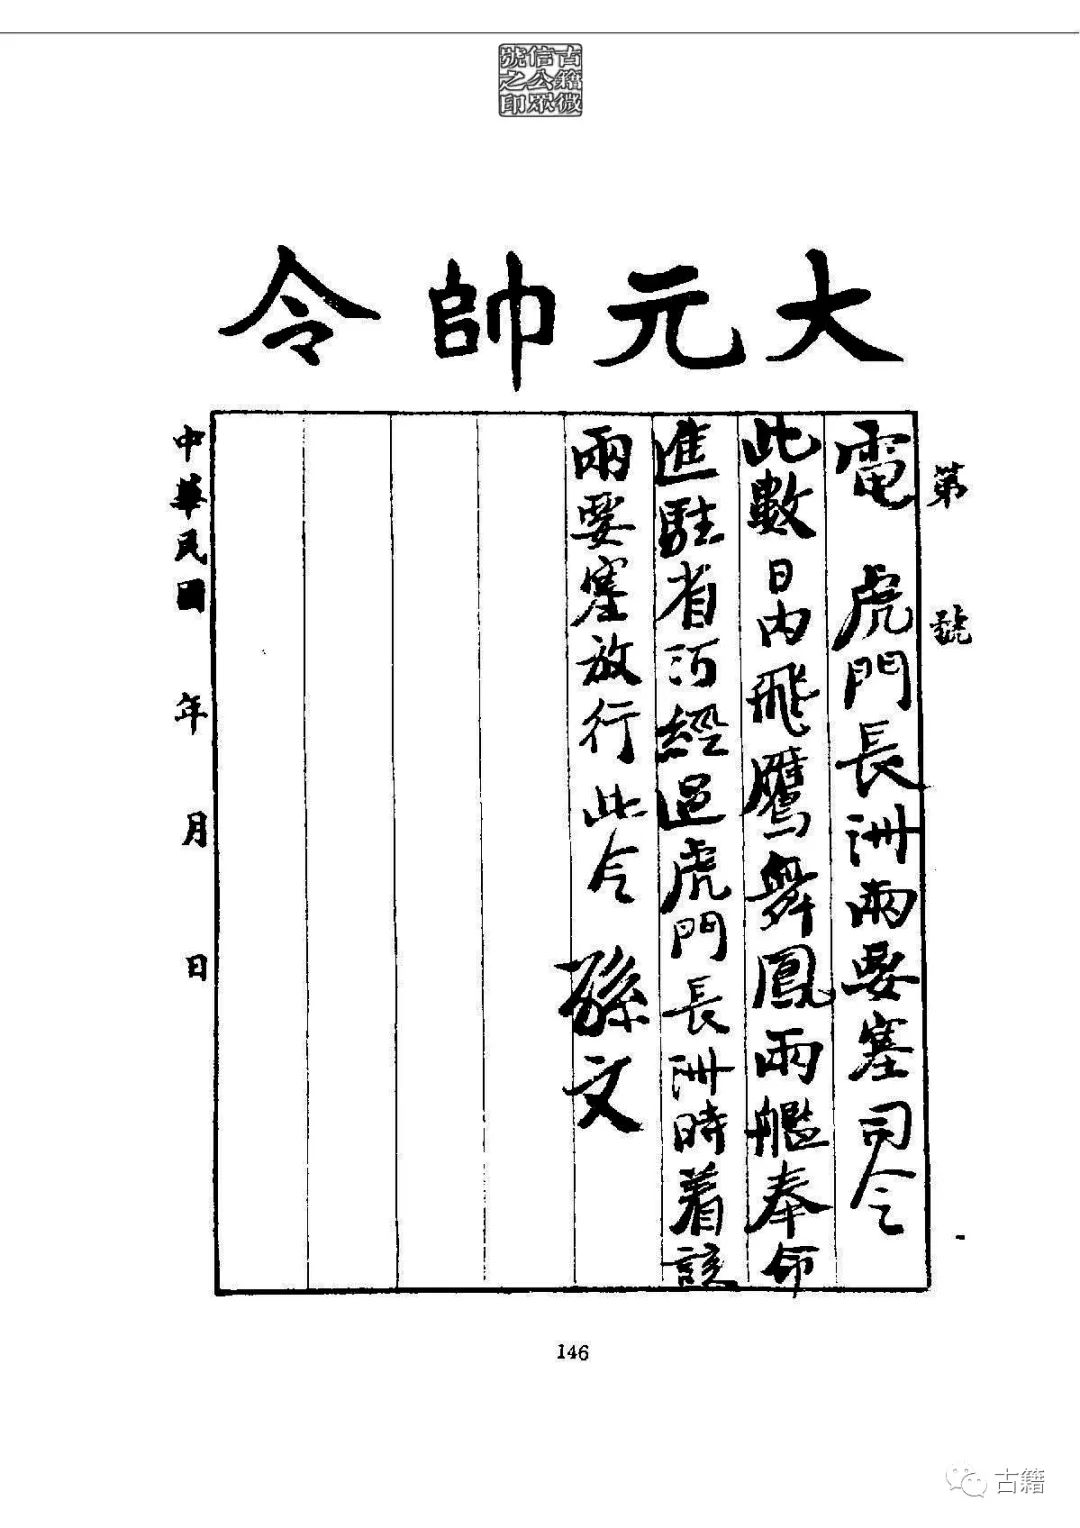 古籍微
信公眾
號之印
大元帥令
第 號
電 虎門長洲兩要塞司令
此數日內飛鷹舞鳳兩艦奉命
進駐省河經過虎門長洲時着該
兩要塞放行此令 孫文
中華民國 年 月 日
146
古籍